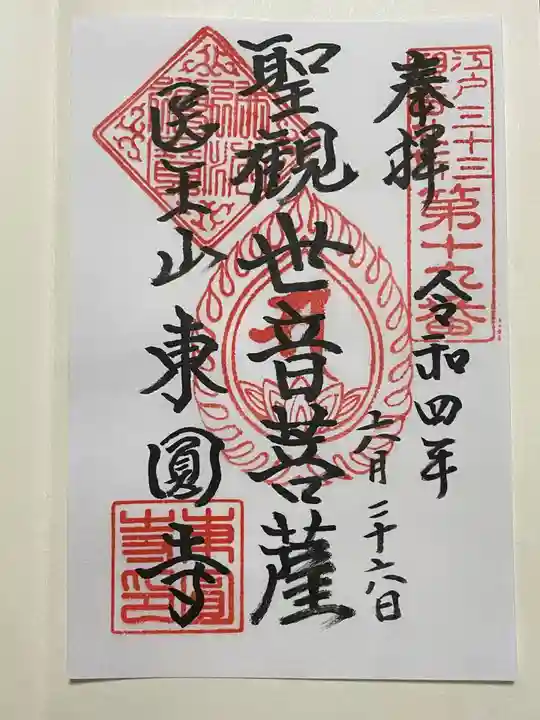 江戸三十三
観音
第十九番
奉拝
令和四年
六月二十六日
聖観世音菩薩
医王山東圓寺
東圓寺印